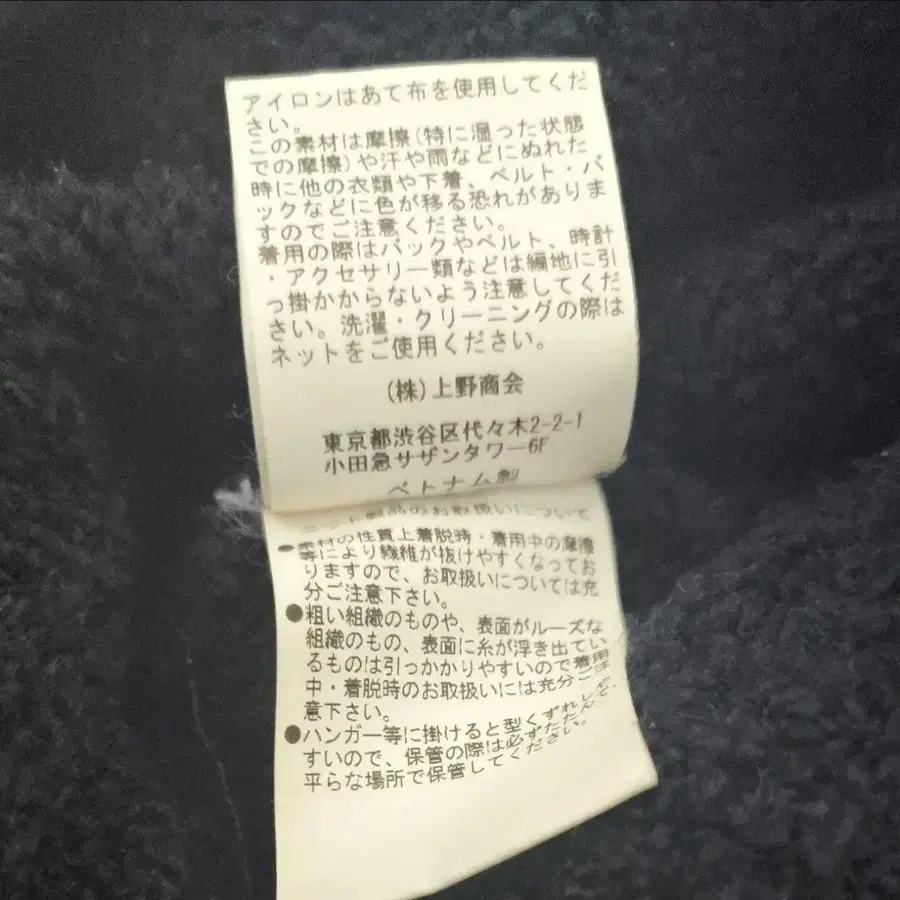 アイロンはあて布を使用してくだ
さい。
この素材は摩擦(特に湿った状態
での摩擦)や汗や雨などにぬれた
時に他の衣類や下着、ベルト・バ
ックなどに色が移る恐れがありま
すのでご注意ください。
着用の際はバックやベルト、時計
・アクセサリー類などは編地に引
っ掛かからないよう注意してくだ
さい。洗濯・クリーニングの際は
ネットをご使用ください。
(株)上野商会
東京都渋谷区代々木2-2-1
小田急サザンタワー6F
ベトナム製
ニット製品のお取扱いについて
●素材の性質上着脱時・着用中の摩擦
等により繊維が抜けやすくなってお
りますので、お取扱いについては充
分ご注意下さい。
●粗い組織のものや、表面がルーズな
組織のもの、表面に糸が浮き出てい
るものは引っかかりやすいので着用
中・着脱時のお取扱いには充分ご注
意下さい。
●ハンガー等に掛けると型くずれしや
すいので、保管の際は必ずたたんで、
平らな場所で保管してください。